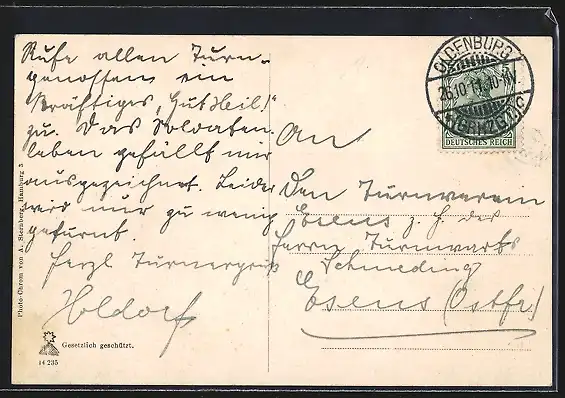 Rufe allen Turn-
genossen ein
kräftiges „Gut Heil!"
zu. Das Soldaten-
leben gefällt mir
ausgezeichnet. Leider
wird nur zu wenig
geturnt.
Herzl Turnergruß
Holdorf
An
den Turnverein
Esens z. H. des
Herrn Turnwarts
Schmeding
Esens (Ostfr.)
OLDENBURG
26.10.11. 10-11V.
(GRHZGT.) C
DEUTSCHES REICH
Photo-Chrom von A. Sternberg, Hamburg 3
Gesetzlich geschützt.
14 235